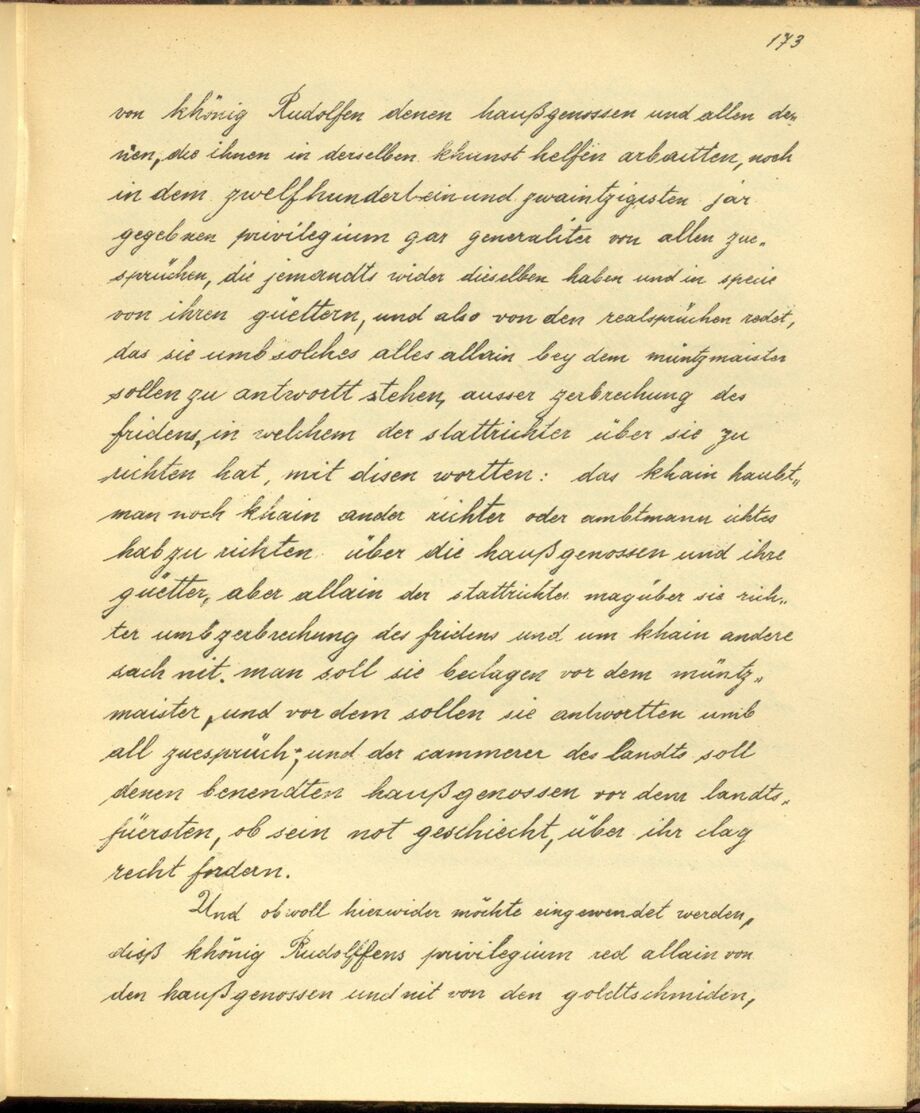 173
von khönig Rudolfen denen haußgenossen und allen de„
nen, die ihnen in derselben khunst helfen arbaitten, noch
in dem zwelfhundert einund zwaintzigisten jar
gegebnen privilegium gar generaliter von allen zue„
sprüchen, die jemandts wider dieselben haben und in specie
von ihren güettern, und also von den realsprüchen redet,
das sie umb solches alles allain bey dem müntzmaister
sollen zu antwortt stehen, ausser zerbrechung des
fridens, in welchem der stattrichter über sie zu
richten hat, mit disen wortten: das khain haubt„
man noch khain ander richter oder ambtmann ichtes
hab zu richten über die haußgenossen und ihre
güetter, aber allain der stattrichter mag über sie rich„
ter umb zerbrechung des fridens und um khain andere
sach nit. man soll sie beclagen vor dem müntz„
maister, und vor dem sollen sie antwortten umb
all zuesprüch; und der cammerer des landts soll
denen benendten haußgenossen vor dem landts„
fürsten, ob sein not geschiecht, über ihr clag
recht fordern.
Und obwoll hierwider möchte eingewendet werden,
diß khönig Rudolffens privilegium red allain von
den haußgenossen und nit von den goldtschmiden,